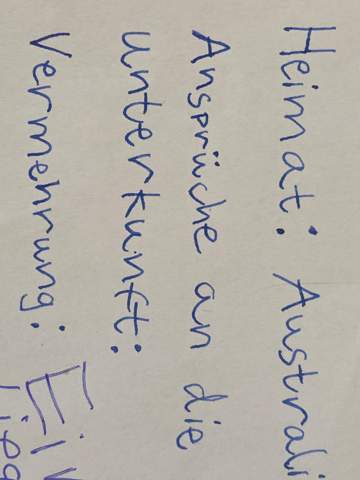 Heimat: Australi
Ansprüche an die
Unterkunft:
Vermehrung: